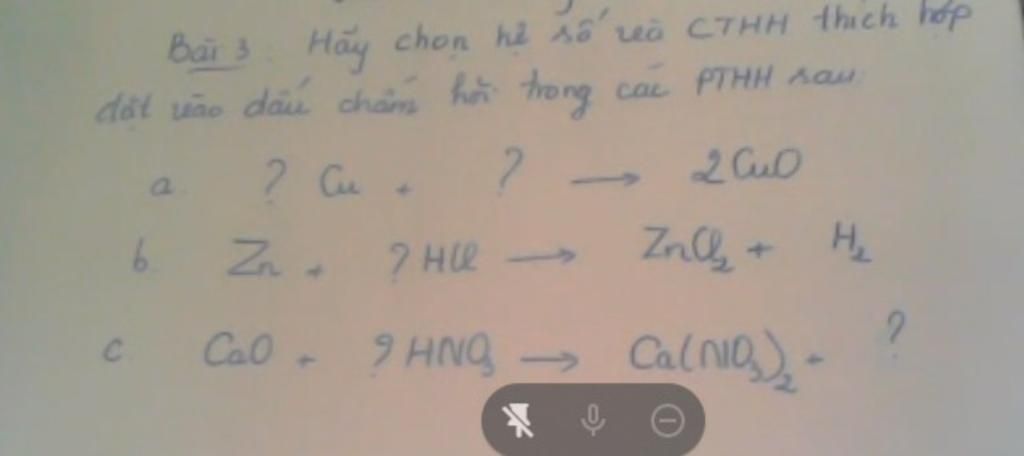 Bài 3: Hãy chọn hệ số và CTHH thích hợp
đặt vào dấu chấm hỏi trong các PTHH sau:
a. ? Cu + ? → 2CuO
b. Zn + ? HCl → ZnCl₂ + H₂
c. CaO + ? HNO₃ → Ca(NO₃)₂ + ?